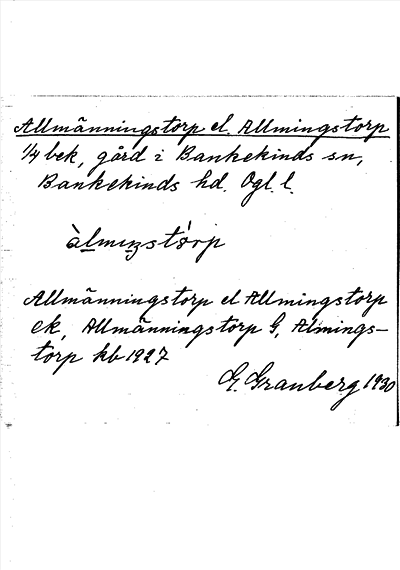 Allmänningstorp el. Allmingstorp
1/4 bek, gård i Bankekinds sn,
Bankekinds hd. Ögl. l.
àlmiŋstó̀rp
Allmänningstorp el Allmingstorp
ek, Allmänningstorp G, Almings-
torp kb 1927
G. Granberg 1930